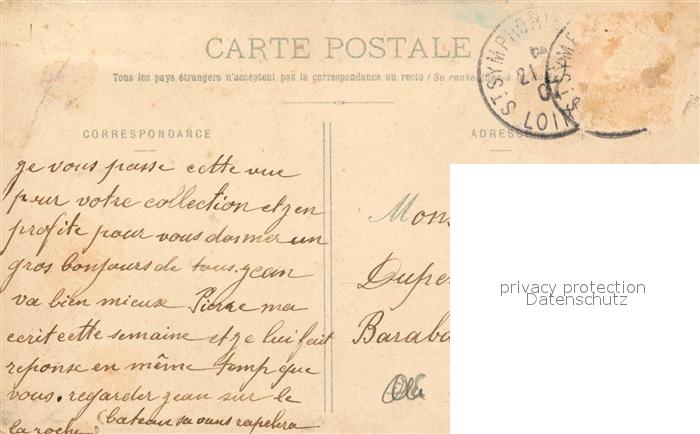 CARTE POSTALE
Tous les pays étrangers n'acceptent pas la correspondance au recto (Se
ST SYMPHORIE
21
LOIR
CORRESPONDANCE
ge vous passe cette vue
pour votre collection et ge en
profite pour vous donner un
gros bonjours de tous. gean
va bien mieux Pierre ma
ecrit cette semaine et ge lui fait
reponse en même temp que
vous. regarder gean sur le
la roche (bateau sa vous rapelera
ADRES
Mons
Duper
Baraba
privacy protection
Datenschutz